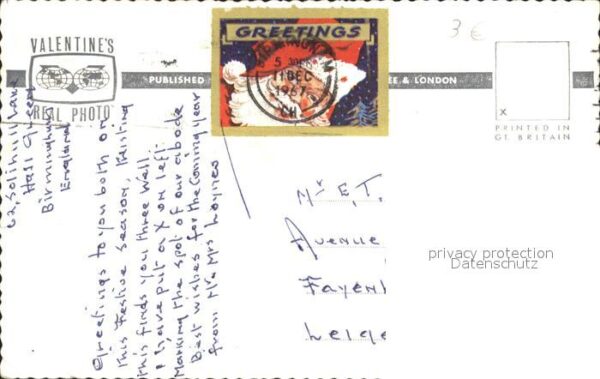 VALENTINE'S
REAL PHOTO
PUBLISHED
EE & LONDON
GREETINGS
BIRMINGHAM
5
11 DEC
1967
3€
X
PRINTED IN
GT. BRITAIN
62, Solihull Lane
Hall Green
Birmingham
England
Greetings to you both on
this Festive Season, trusting
this finds you three Well.
I have put a X on left
Marking the spot of our abode
Best wishes for the Coming year
from Mr & Mrs
Mr E. T.
Avenue
Fayen
Leige
privacy protection
Datenschutz